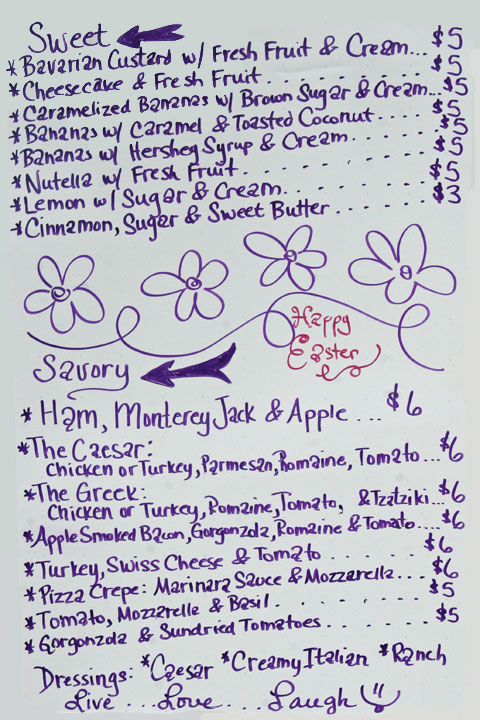 Sweet
*Bavarian Custard w/ Fresh Fruit & Cream... $5
*Cheesecake & Fresh Fruit......... $5
*Caramelized Bananas w/ Brown Sugar & Cream... $5
*Bananas w/ Caramel & Toasted Coconut.... $5
*Bananas w/ Hershey Syrup & Cream..... $5
*Nutella w/ Fresh Fruit.......... $5
*Lemon w/ Sugar & Cream......... $5
*Cinnamon, Sugar & Sweet Butter...... $3
Happy
Easter
Savory
*Ham, Monterey Jack & Apple ... $6
*The Caesar:
Chicken or Turkey, Parmesan, Romaine, Tomato... $6
*The Greek:
Chicken or Turkey, Romaine, Tomato, & Tzatziki... $6
*Apple Smoked Bacon, Gorgonzola, Romaine & Tomato.... $6
*Turkey, Swiss Cheese & Tomato ...... $6
*Pizza Crepe: Marinara Sauce & Mozzarella... $6
*Tomato, Mozzarelle & Basil.......... $5
*Gorgonzola & Sundried Tomatoes....... $5
Dressings: *Caesar *Creamy Italian *Ranch
Live...Love...Laugh